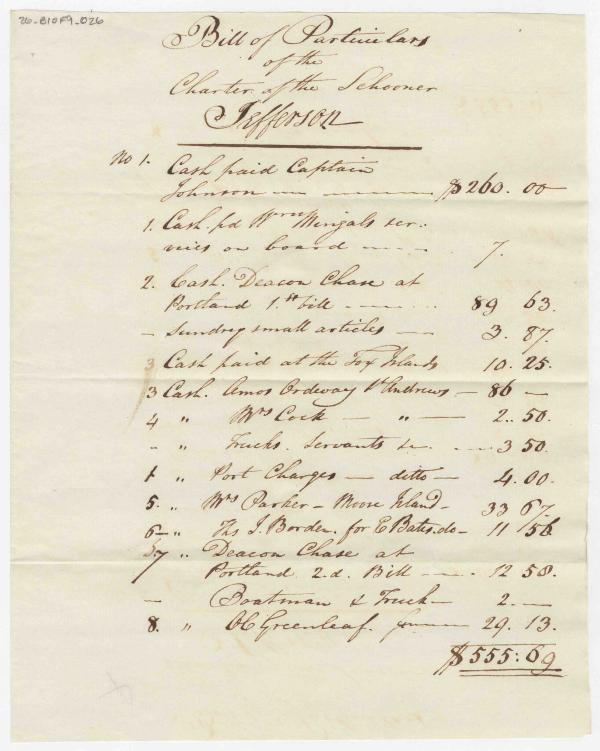 26-B10F9-026
Bill of Particulars
of the
Charter of the Schooner
Jefferson
No 1. Cash paid Captain
Johnson — — $260. 00
1. Cash. pd Wm Mingals ser..
vices on board — . — . 7.
2. Cash. Deacon Chase at
Portland 1.st bill — . — . 89 63.
— Sundrey small articles — 3. 87.
3 Cash paid at the Fox Islands 10. 25.
3 Cash. Amos Ordeway St Andrews — 86 —
4 " Mrs Cock — " — 2.. 50.
- " Trucks. Servants &c. — 3 50.
1 " Port Charges — ditto — 4. 00.
5. " Mrs Parker — Moose Island — 33 67.
6 — " Ths J. Borden. for E Bates. do — 11 56
7 " Deacon Chase at
Portland 2.d. Bill — . — . 12 58.
— Boatman & Truck — 2. —
8. " O C Greenleaf. — 29. 13.
$555: 69